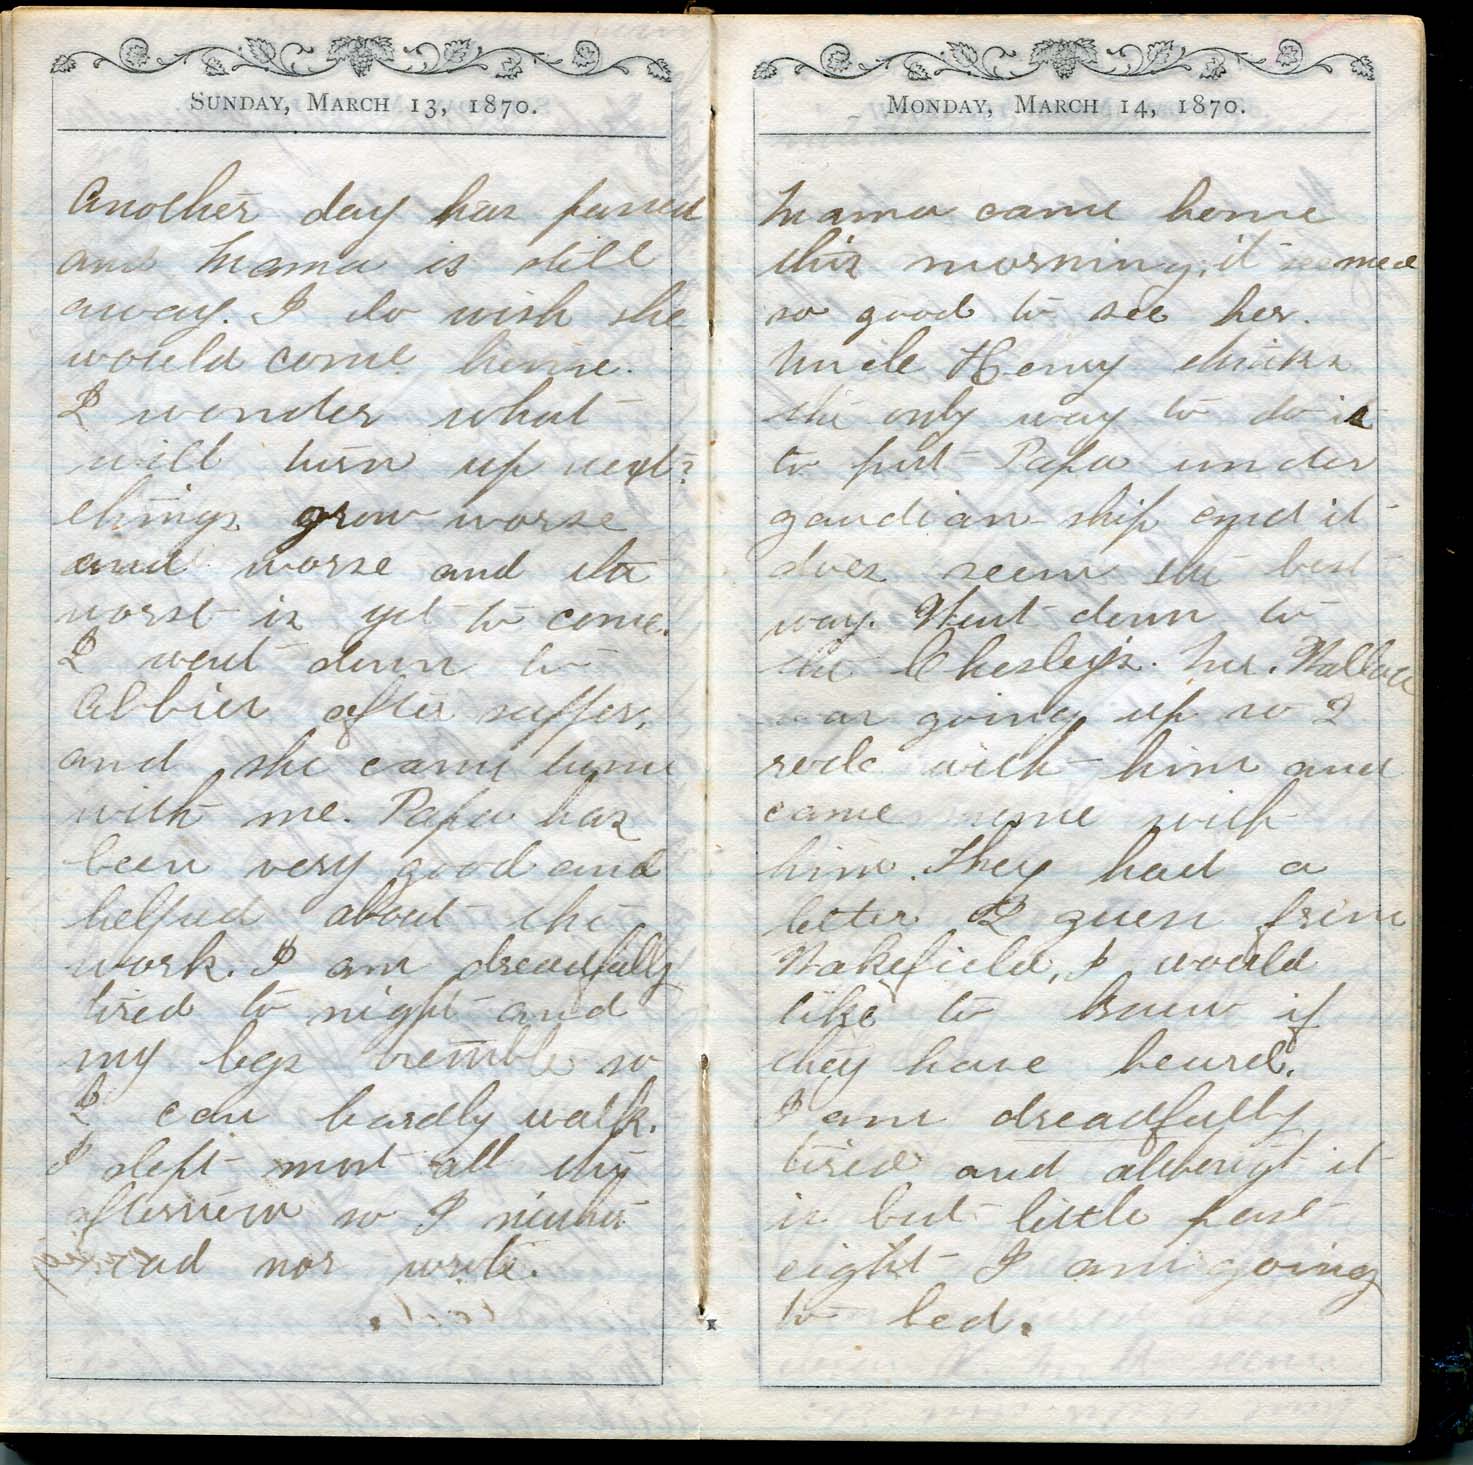 SUNDAY, MARCH 13, 1870.
Another day has passed
and Mama is still
away. I do wish she
would come home.
I wonder what
will turn up next?
things grow worse
and worse and the
worst is yet to come.
I went down to
Abbies after supper,
and she came home
with me. Papa has
been very good and
helped about the
work. I am dreadfully
tired to night and
my legs tremble so
I can hardly walk.
I slept most all the
afternoon so I neither
read nor write.
MONDAY, MARCH 14, 1870.
Mama came home
this morning, it seemed
so good to see her.
Uncle Henry thinks
the only way to do is
to put Papa under
gaudian-ship and it
does seem the best
way. Went down to
the Chesley's. Mr. Wallace
was going up so I
rode with him and
came home with
him. They had a
letter I guess from
Wakefield, I would
like to know if
they have heard.
I am dreadfully
tired and although it
is but little past
eight I am going
to bed.